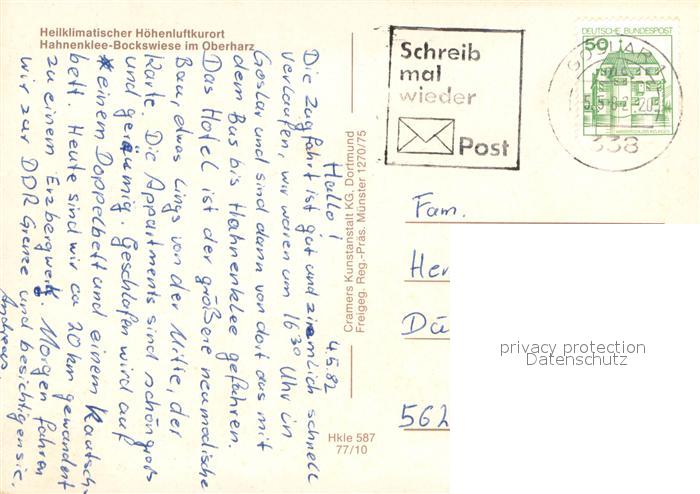 Heilklimatischer Höhenluftkurort
Hahnenklee-Bockswiese im Oberharz
Hallo! 4.5.82
Die Zugfahrt ist gut und ziemlich schnell
verlaufen, wir waren um 16³⁰ Uhr in
Goslar und sind dann von dort aus mit
dem Bus bis Hahnenklee gefahren.
Das Hotel ist der größere neumodische
Bau, etwas links von der Mitte, der
Karte. Die Appartments sind schön groß
und geräumig. Geschlafen wird auf
einem Doppelbett und einem Kautsch-
bett. Heute sind wir ca 20 km gewandert
zu einem Erzbergwerk. Morgen fahren
wir zur DDR Grenze und besichtigen sie.
Andreas.
Cramers Kunstanstalt KG, Dortmund
Freigeg. Reg.-Präs. Münster 1270/75
Hkle 587
77/10
Schreib
mal
wieder
Post
DEUTSCHE BUNDESPOST
50
GOSLAR 1
338
Fam.
Her
Dü
562
privacy protection
Datenschutz